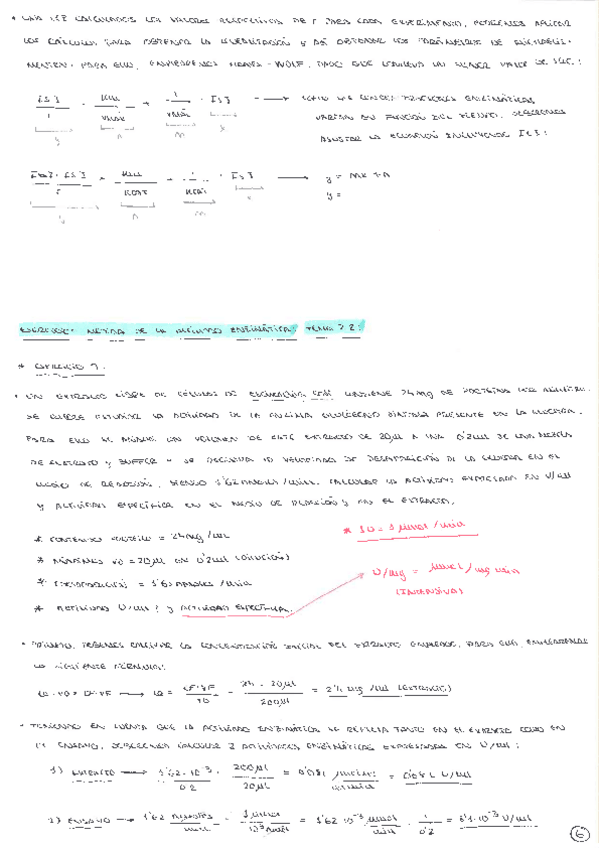 * UNA VEZ CALCULADOS LOS VALORES RESPECTIVOS DE r PARA CADA EXPERIMENTO, PODEMOS APLICAR
LOS CÁLCULOS PARA OBTENER LA Y ASÍ OBTENER LOS PARÁMETROS DE MICHAELIS-
MENTEN. PARA ELLO, HANES-WOLF, UN MENOR VALOR DE
[S] / r = KM / VMAX + 1 / VMAX · [S] → COMO LAS ENZIMÁTICAS
y n m x VARÍAN EN FUNCIÓN DEL DEBEREMOS
AJUSTAR LA ECUACIÓN [E]:
[E] · [S] / r = KM / KCAT + 1 / KCAT · [S] → y = mx + n
y n m x y =
EJERCICIOS: MEDIDA DE LA ACTIVIDAD ENZIMÁTICA, TEMA 7.2:
* EJERCICIO 1.
* UN EXTRACTO LIBRE DE CÉLULAS DE ESCHERICHIA COLI CONTIENE 24 mg DE PROTEÍNA POR MILILITRO.
SE QUIERE ESTUDIAR LA ACTIVIDAD DE LA ENZIMA GLUCÓGENO SINTASA PRESENTE EN LA MUESTRA.
PARA ELLO SE AÑADE UN VOLUMEN DE ESTE EXTRACTO DE 20 μl A UNA 0'2 ml DE UNA MEZCLA
DE SUSTRATO Y BUFFER Y SE DETERMINA LA VELOCIDAD DE DESAPARICIÓN DE LA EN EL
MEDIO DE REACCIÓN, SIENDO 1'62 nmoles/min. CALCULAR LA ACTIVIDAD EXPRESADA EN U/ml
Y ACTIVIDAD ESPECÍFICA EN EL MEDIO DE REACCIÓN Y EN EL EXTRACTO.
* CONTENIDO PROTEICO = 24 mg/ml
* 1U = 1 μmol/min
* AÑADIMOS V0 = 20 μl EN 0'2 ml (DILUCIÓN)
U/mg = μmol/mg min
(INTENSIVA)
* = 1'62 nmoles/min
* ACTIVIDAD U/ml? Y ACTIVIDAD ESPECÍFICA.
* PRIMERO, DEBEMOS CALCULAR LA CONCENTRACIÓN INICIAL DEL EXTRACTO PARA ELLO,
LA SIGUIENTE FÓRMULA:
→ = 24 · 20 μl / 200 μl = 2'4 mg/ml (EXTRACTO)
* TENIENDO EN CUENTA QUE LA ACTIVIDAD ENZIMÁTICA SE REFLEJA TANTO EN EL EXTRACTO COMO EN
EL ENSAYO, DEBEREMOS CALCULAR 2 ACTIVIDADES ENZIMÁTICAS EXPRESADAS EN U/ml:
1) EXTRACTO → 1'62 · 10⁻³ / 0'2 · 200 μl / 20 μl = 0'081 = 0'081 U/ml
2) ENSAYO → 1'62 nmoles / min · 1 μmol / 10³ nmol = 1'62 · 10⁻³ μmol / min · 1 / 0'2 = 8'1 · 10⁻³ U/ml
6